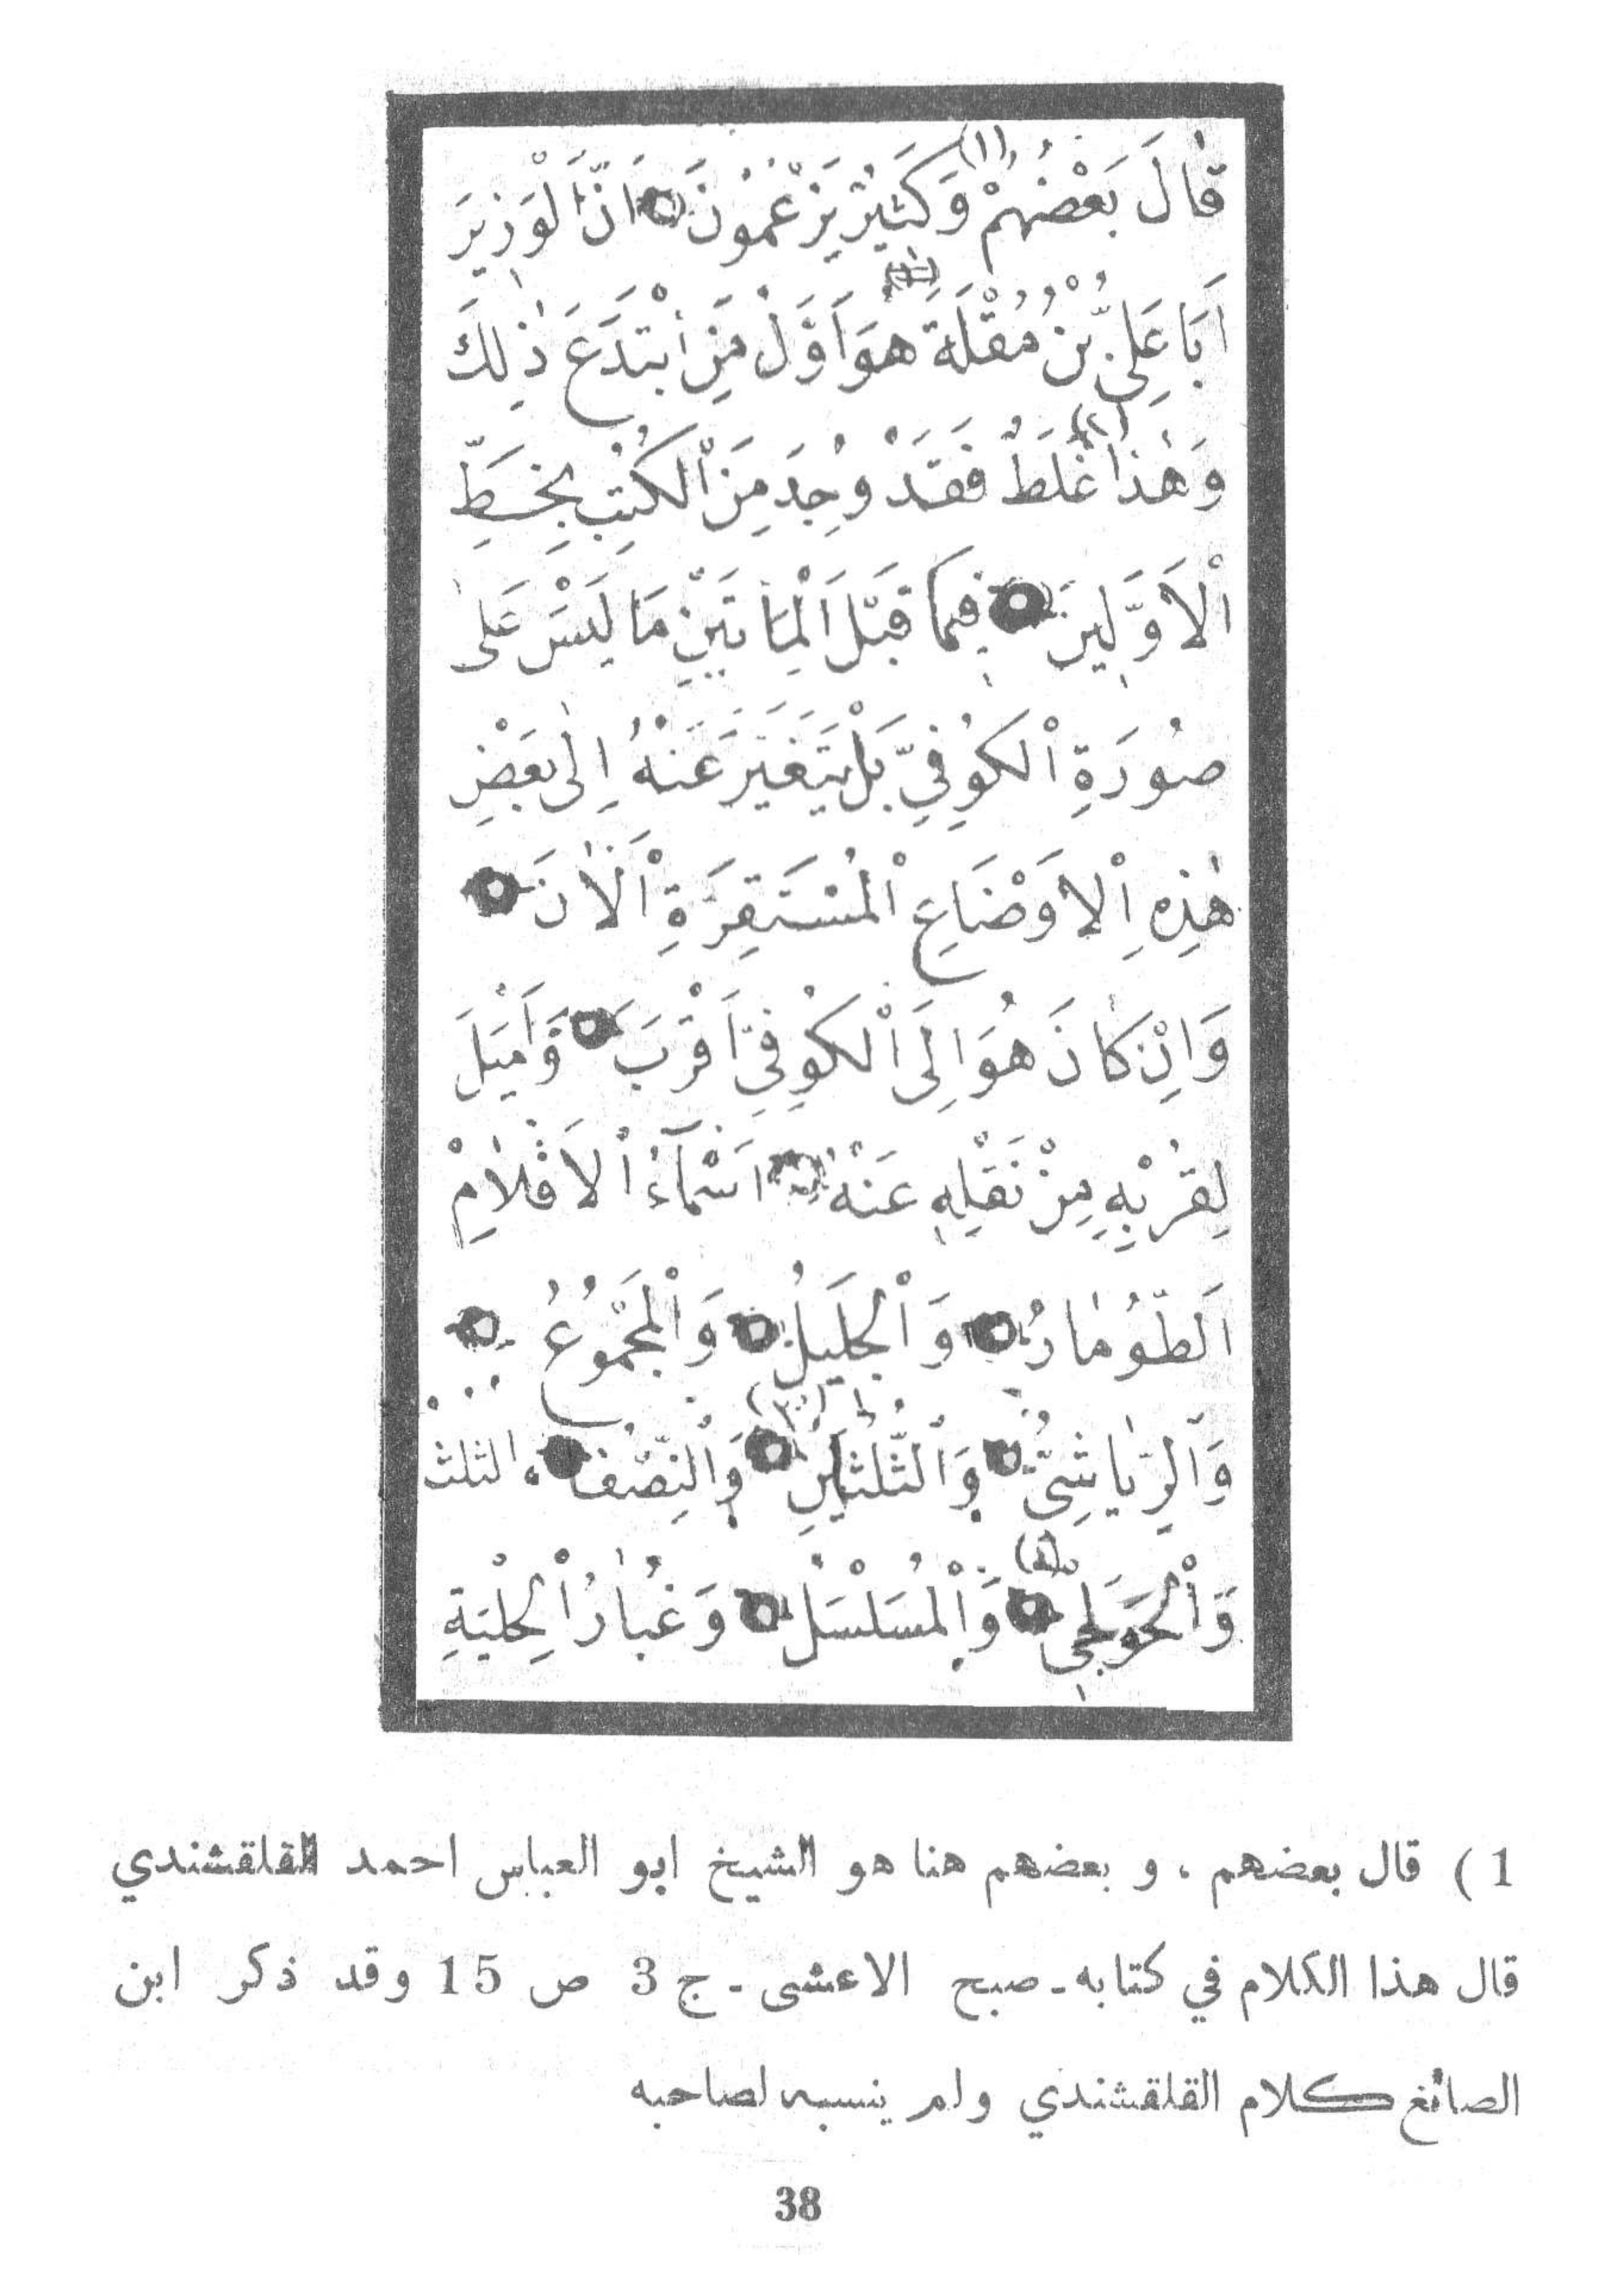 قَالَ بَعْضُهُمْ (١) وَكَثِيرٌ يَزْعُمُونَ اَنَّ الْوَزِيرَ
اَبَا عَلِيِّ بْنُ مُقْلَةَ هُوَ اَوَّلُ مَنِ ابْتَدَعَ ذٰلِكَ
وَهٰذَا غَلَطٌ فَقَدْ وُجِدَ مِنَ الْكُتُبِ بِخَطِّ
الْاَوَّلِينَ فِيمَا قَبْلَ الْمِاتَيْنِ مَا لَيْسَ عَلَى
صُورَةِ الْكُوفِيِّ بَلْ يَتَغَيَّرُ عَنْهُ اِلَى بَعْضِ
هٰذِهِ الْاَوْضَاعِ الْمُسْتَقِرَّةِ اَلْاٰنَ
وَاِنْ كَانَ هُوَ اِلَى الْكُوفِيِّ اَقْرَبَ وَاَمْيَلَ
لِقُرْبِهِ مِنْ نَقْلِهِ عَنْهُ اَسْمَآءُ الْاَقْلَامِ
اَلطُّومَارُ وَالْجَلِيلُ وَالْمَجْمُوعُ
وَالرِّيَاشِيُّ وَالثُّلُثَيْنِ وَالنِّصْفُ والثلث
وَالْحَوَلجِى وَالْمُسَلْسَلُ وَغُبَارُ الْحِلْيَةِ
1 ) قال بعضهم ، و بعضهم هنا هو الشيخ ابو العباس احمد القلقشندي
قال هذا الكلام في كتابه - صبح الاعشى - ج 3 ص 15 وقد ذكر ابن
الصائغ كلام القلقشندي ولم ينسبه لصاحبه
38